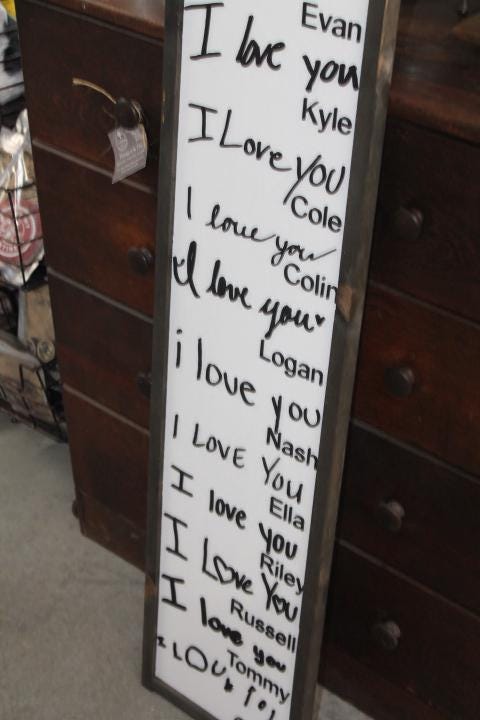 Evan
I love you
Kyle
I Love YOU
Cole
I love you
Colin
I love you
Logan
i love you
Nash
I LOVE You
Ella
I love you
Riley
I Love You
Russell
I love you
Tommy